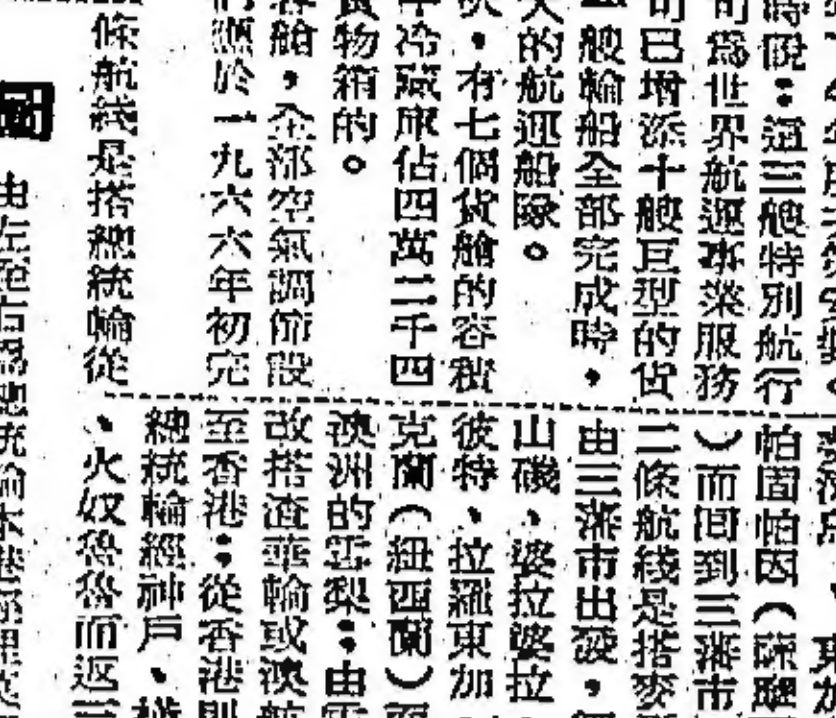 時說：這三艘特別航行
司為世界航運事業服務
司已增添十艘巨型的貨
艘輪船全部完成時，
大的航運船隊。
，有七個貨艙的容積
冷藏庫佔四萬二千四
貨物箱的。
客艙，全部空氣調節設
於一九六六年初完
條航綫是搭總統輪從
帕固帕因（薩
）而囘到三藩市
二條航綫是搭麥
由三藩市出發，
山磯、婆拉婆拉
彼特、拉羅東加
克蘭（紐西蘭）而
澳洲的雪梨：由雪
改搭渣華輪或澳航
至香港：從香港則
總統輪經神戶、橫
、火奴魯魯而返三
圖
由左至右為總統輪本港經理